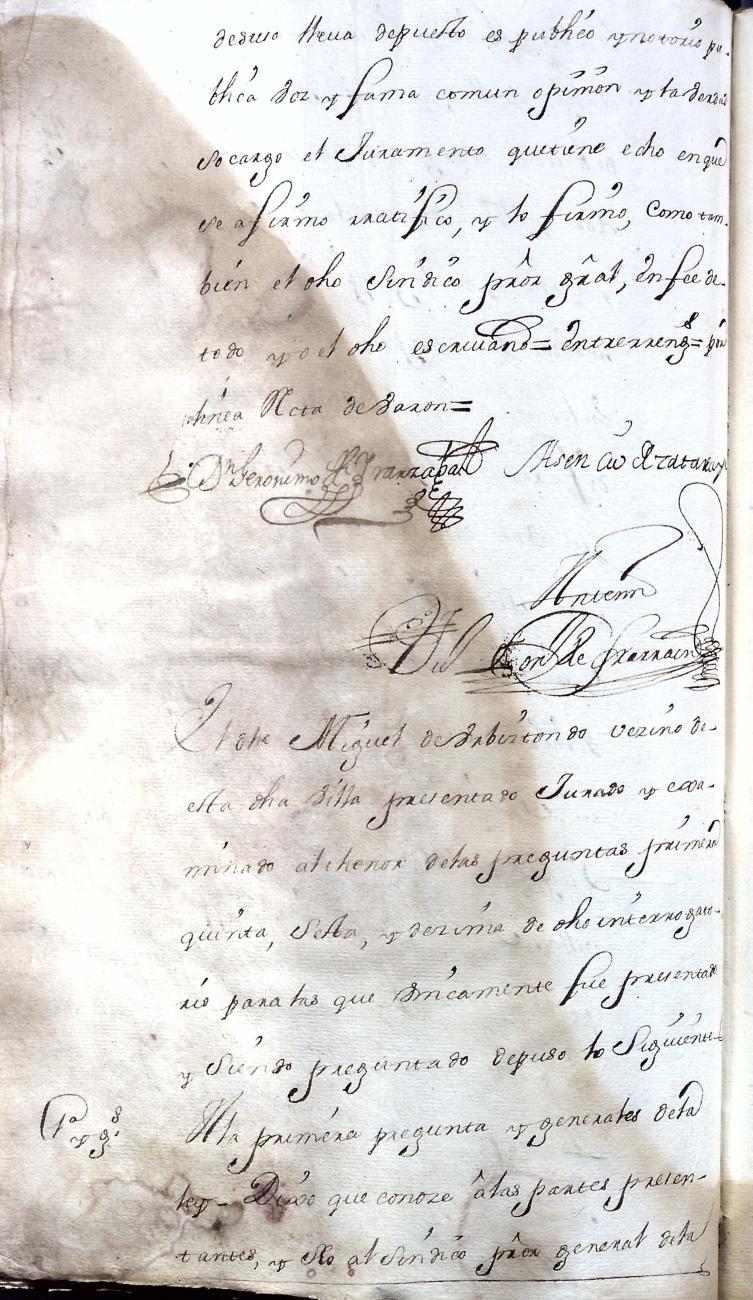 desuso lleva depuesto es publico y notorio pu-
blica voz y fama comun opinion y la verdad
so cargo el Juramento que tiene echo en que
se afirmo rratifico, y lo firmo, como tam-
bien el dho Sindico prōr grāl, en fee de
todo yo el dho escrivano= Entrerrengs= por
linea Recta de varon=
Dn Geronimo de Irarrazabal Asencio de Zatarayn
Antemi
de Larrain
El dho Miguel de Urbiztondo vezino de
esta dha Villa presentado Jurado y exa-
minado al thenor de las preguntas primera
quinta, Sesta, y dezima de dho interrogato-
rio para las que Unicamente fue presentado
y Siendo preguntado depuso lo Siguiente
1a y gs A la primera pregunta y generales de la
ley - Dixo que conoze â las partes presen-
tantes, y al Sindico prōr general de la